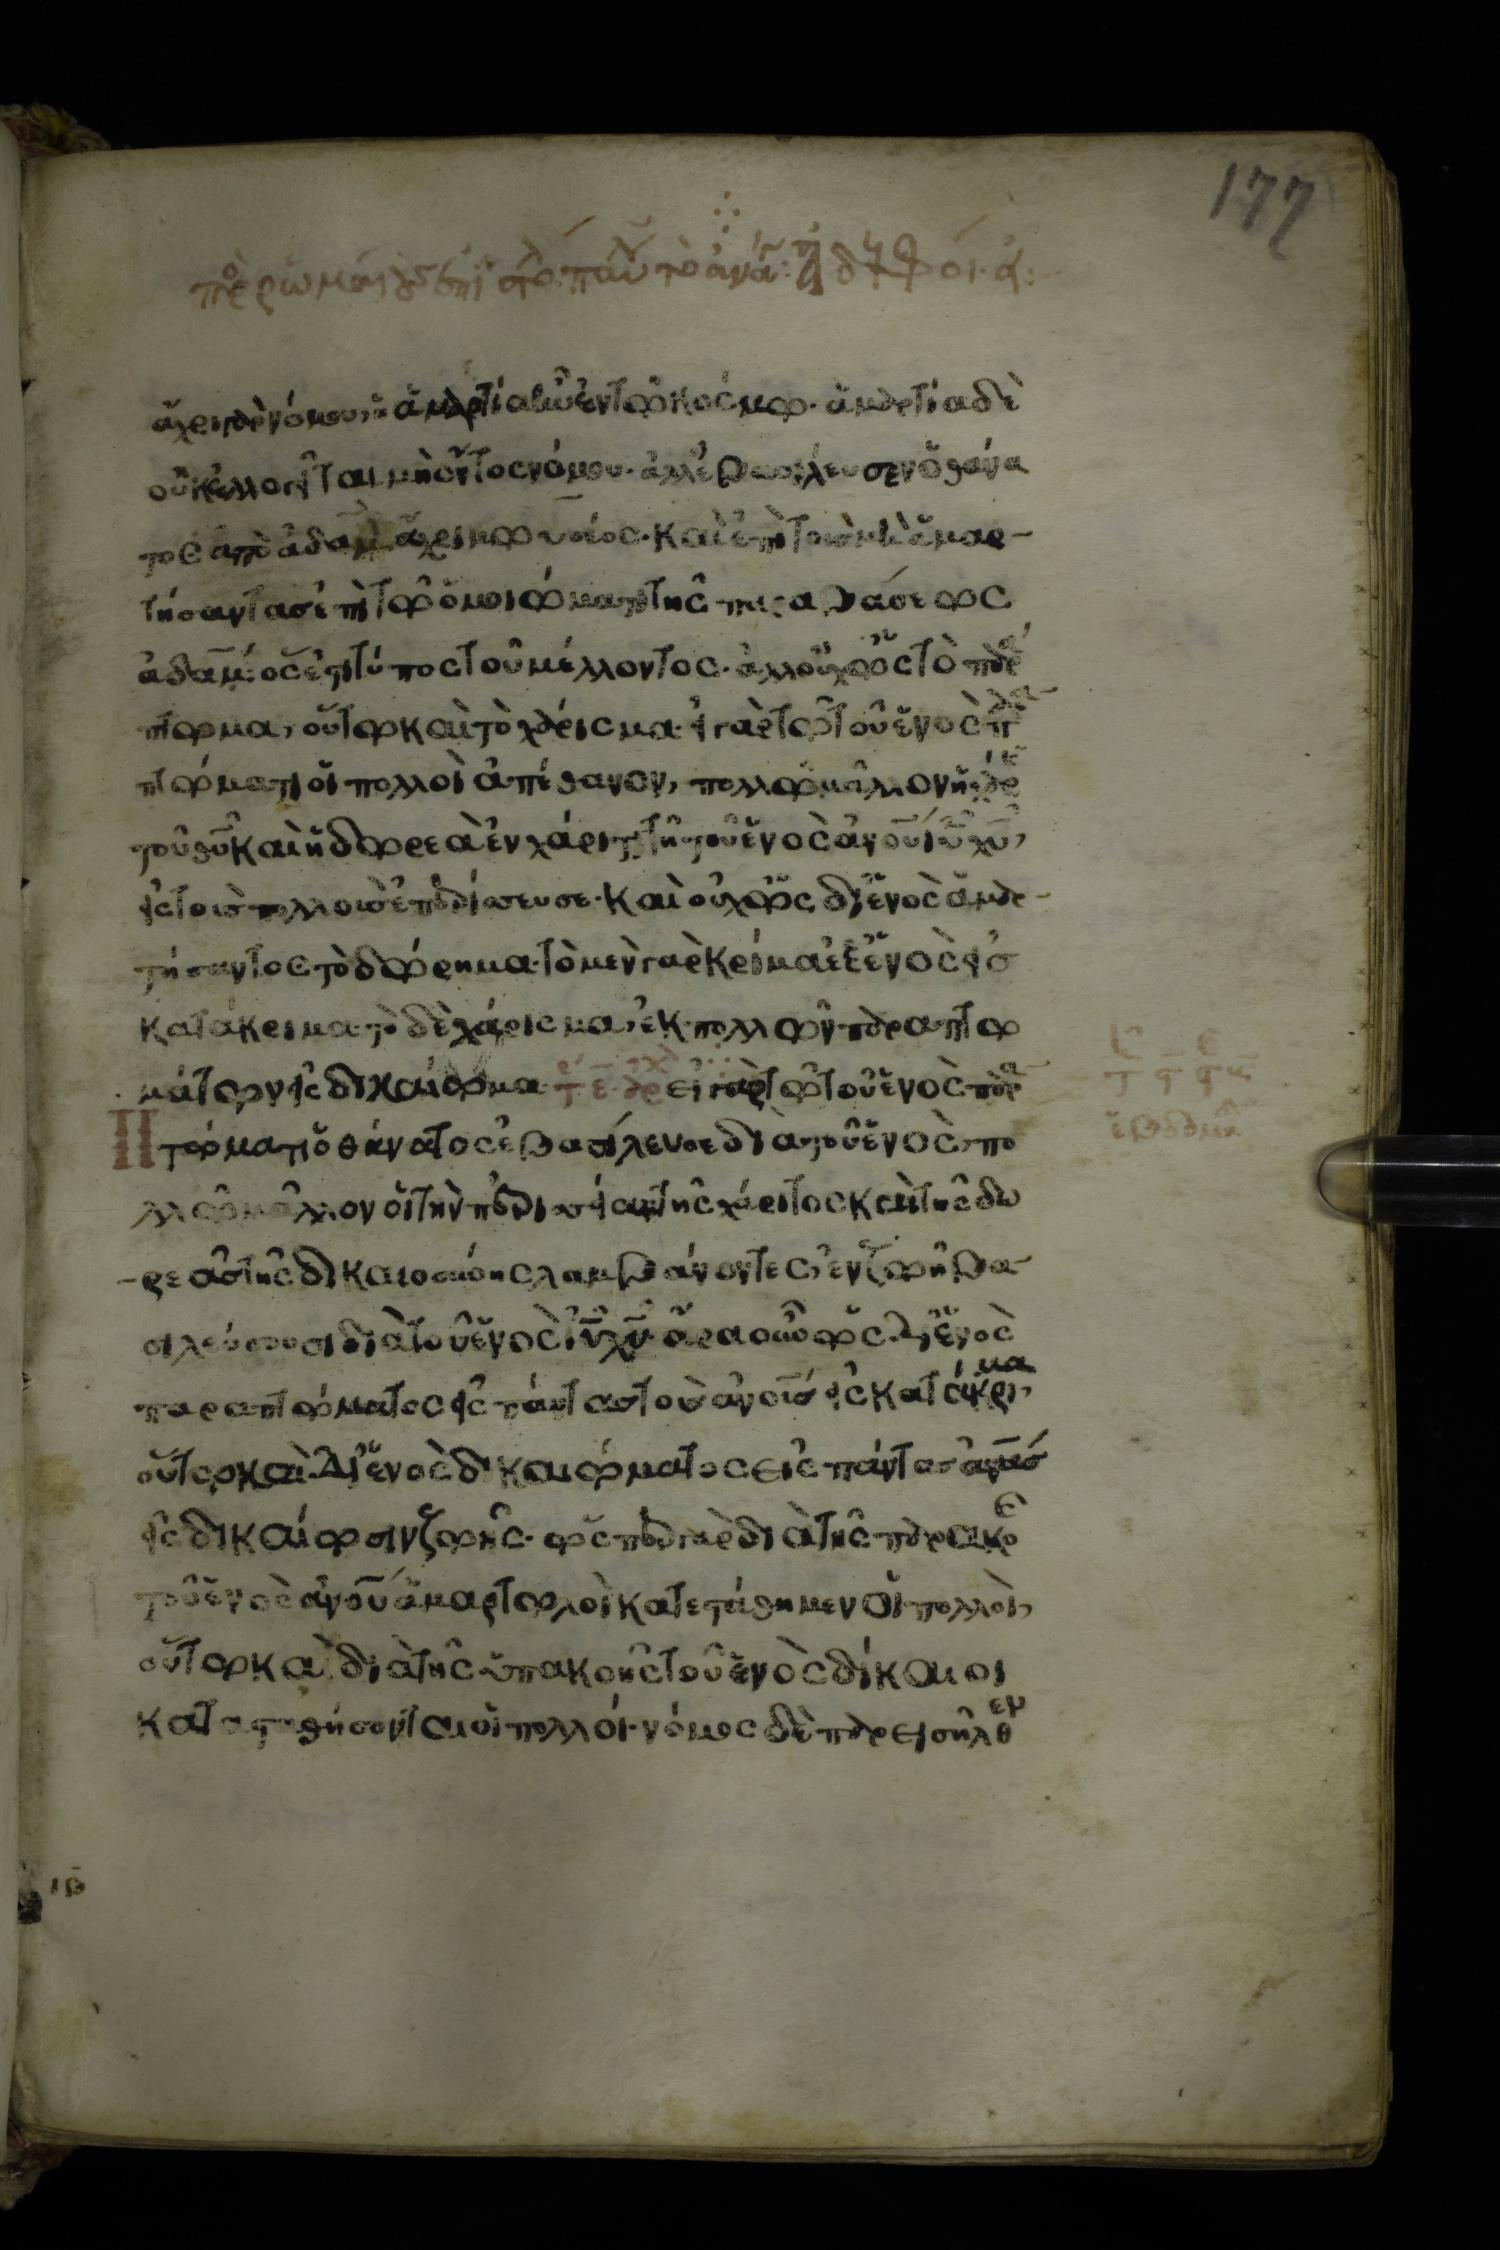 177
ἄχρι γὰρ νόμου, ἁμαρτία ἦν ἐν τῷ κόσμω· ἁμαρτία δὲ
οὐκ ἐλλογεῖται μὴ ὄντος νόμου· ἀλλ' ἐβασίλευσεν ὁ θάνα
τος ἀπὸ ἀδὰμ ἄχρι μωυσέος· καὶ ἐπὶ τοὺς μὴ ἁμαρ-
τήσαντας ἐπὶ τῷ ὁμοιώματι τῆς παραβάσεως
ἀδάμ· ὅς ἐστι τύπος τοῦ μέλλοντος· ἀλλ' οὐχ ὡς τὸ παρά
πτωμα, οὕτω καὶ τὸ χάρισμα· εἰ γὰρ τῷ τοῦ ἑνὸς παρα
πτώματι οἱ πολλοὶ ἀπέθανον, πολλῷ μᾶλλον ἡ χάρις
τοῦ θυ καὶ ἡ δωρεὰ ἐν χάριτι τῆ τοῦ ἑνὸς ἀνου ιυ χυ,
εἰς τοὺς πολλοὺς ἐπερίσσευσε· καὶ οὐχ ὡς δι' ἑνὸς ἁμαρ-
τήσαντος τὸ δώρημα· τὸ μὲν γὰρ κρίμα ἐξ ἑνὸς εἰς
κατάκριμα· τὸ δὲ χάρισμα, ἐκ πολλῶν παραπτω
μάτων εἰς δικαίωμα· εἰ γὰρ τῷ τοῦ ἑνὸς παρα
πτώματι ὁ θάνατος ἐβασίλευσε διὰ τοῦ ἑνὸς, πο
λλῷ μᾶλλον οἱ τὴν περισσείαν τῆς χάριτος καὶ τῆς δω
-ρεᾶς τῆς δικαιοσύνης λαμβάνοντες, ἐν ζωῆ βα-
σιλεύσουσι διὰ τοῦ ἑνὸς ιυ χυ· ἄρα οὖν ὡς δι' ἑνὸς
παραπτώματος εἰς πάντας τοὺς ἀνους εἰς κατάκριμα,
οὕτω καὶ δι' ἑνὸς δικαιώματος εἰς πάντας ἀνους
εἰς δικαίωσιν ζωῆς· ὥσπερ γὰρ διὰ τῆς παρακοῆς
τοῦ ἑνὸς ἀνου ἁμαρτωλοὶ κατεστάθημεν οἱ πολλοὶ,
οὕτω καὶ διὰ τῆς ὑπακοῆς τοῦ ἑνὸς δίκαιοι
κατασταθήσονται οἱ πολλοί· νόμος δὲ παρεισῆλθεν